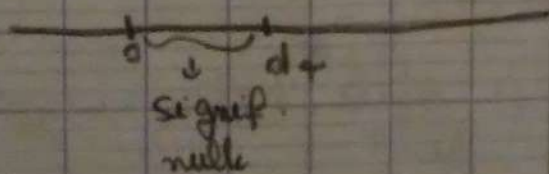 0 d +
↓
signif.
nulle